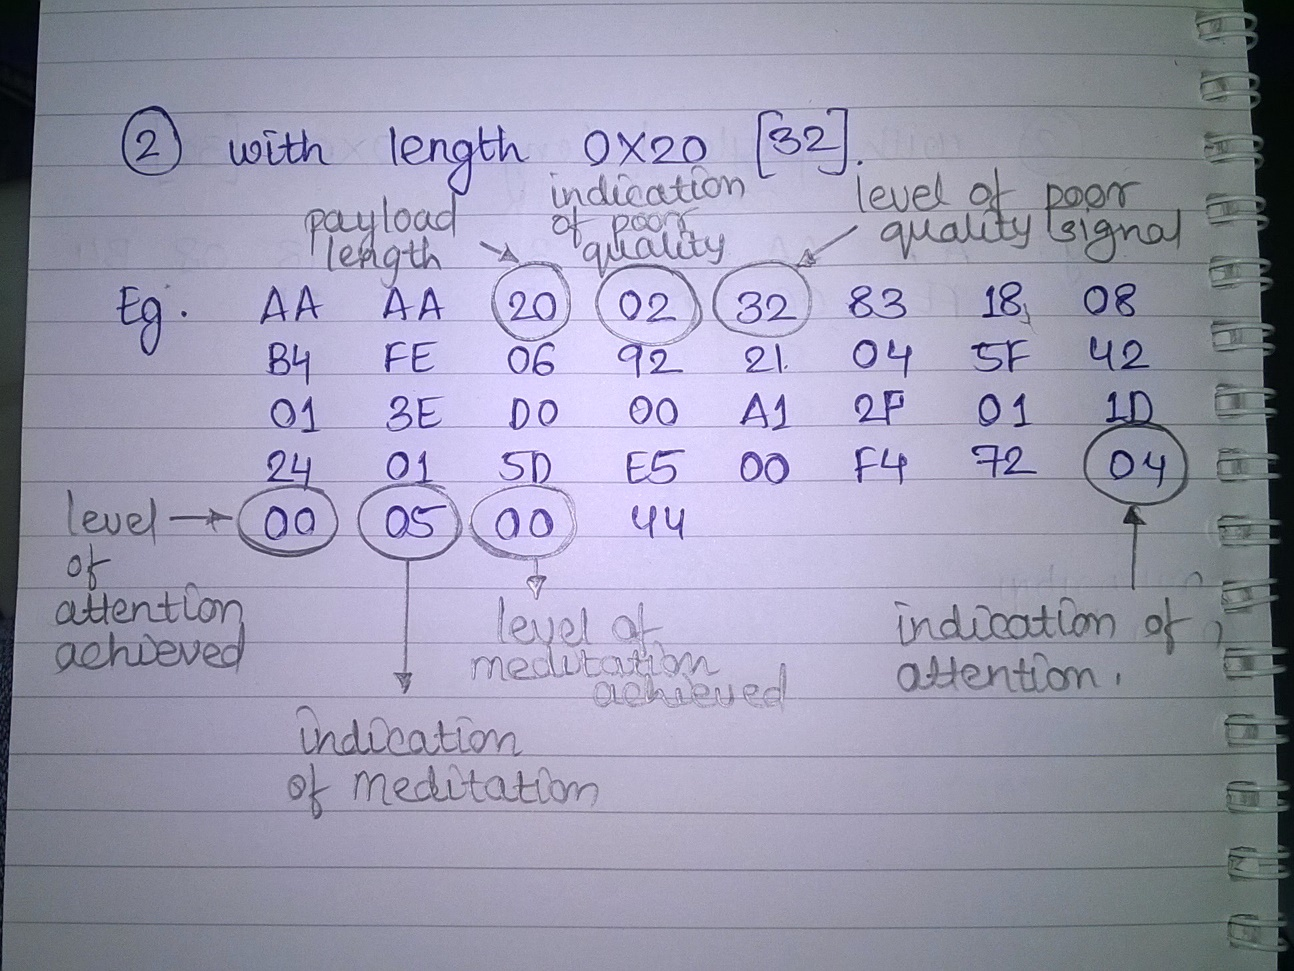 ② with length 0X20 [32].
payload length
indication of poor quality
level of poor quality signal
Eg. AA AA 20 02 32 83 18 08
B4 FE 06 92 21 04 5F 42
01 3E D0 00 A1 2F 01 1D
24 01 5D E5 00 F4 72 04
00 05 00 44
level of attention achieved
indication of meditation
level of meditation achieved
indication of attention.